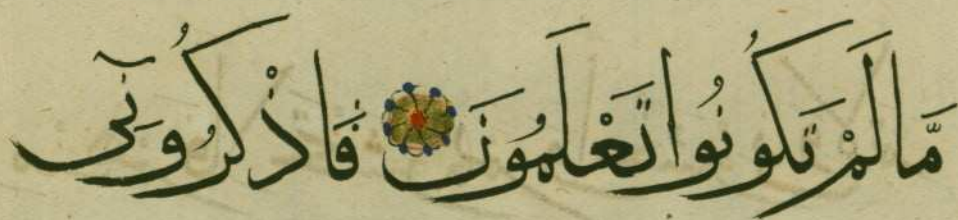 مَّا لَمْ تَكُونُوا تَعْلَمُونَ ۝ فَاذْكُرُونِىٓ